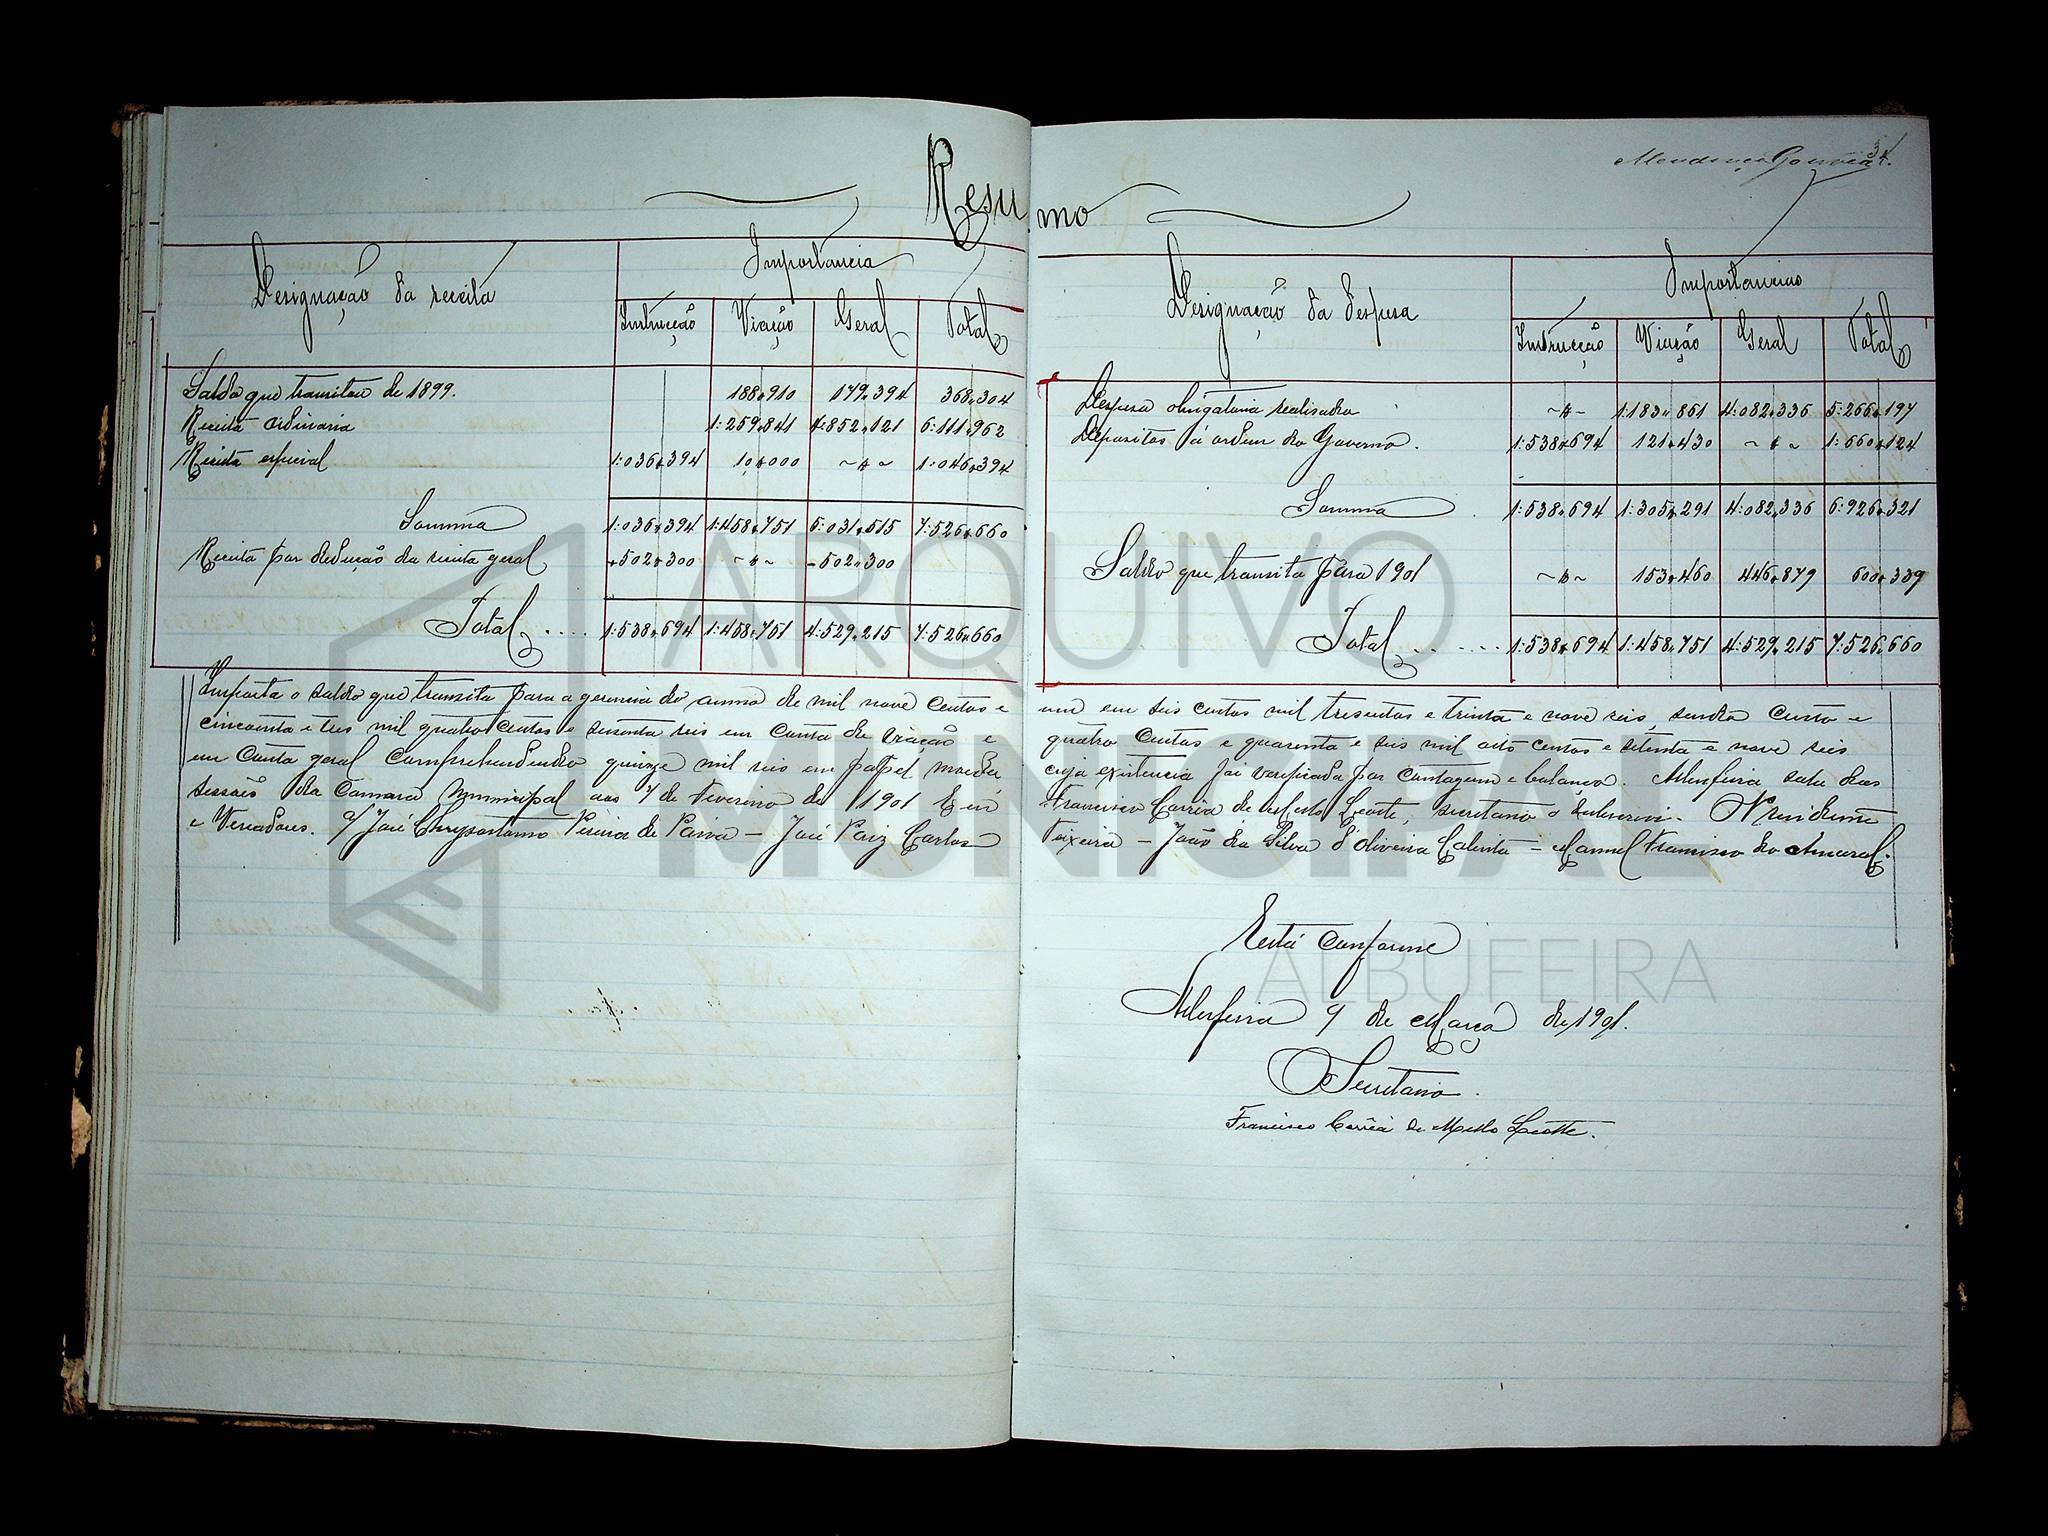 Resumo
34.
Designação da receita
Importancia
Instrucção Viação Geral Total
Saldo que transitou de 1899. 188$910 179$394 368$304
Receita ordinaria 1:259$841 4:852$121 6:111$962
Receita especial 1:036$394 10$000 ~$~ 1:046$394
Somma 1:036$394 1:458$751 5:031$515 7:526$660
Receita por deducção da receita geral +502$300 ~$~ -502$300
Total .... 1:538$694 1:458$751 4:529$215 7:526$660
Designação da despesa
Importancias
Instrucção Viação Geral Total
Despesa obrigatoria realisada ~$~ 1:183$861 4:082$336 5:266$197
Depositos á ordem do Governo. 1:538$694 121$430 ~$~ 1:660$124
Somma 1:538$694 1:305$291 4:082$336 6:926$321
Saldo que transita para 1901 ~$~ 153$460 446$879 600$339
Total ...... 1:538$694 1:458$751 4:529$215 7:526$660
Importa o saldo que transita para a gerencia do anno de mil nove centos e um em seis centos mil tresentos e trinta e nove reis, sendo cento e
cincoenta e tres mil quatro centos e sessenta reis em conta de viação e quatro centos e quarenta e seis mil oito centos e setenta e nove reis
em conta geral comprehendendo quinze mil reis em papel moeda cuja existencia foi verificada por contagem e balanço. Albufeira sala das
sessões da Camara Municipal aos 7 de Fevereiro de 1901 E eu Francisco Corrêa de Mello Leotte, secretario o subscrevi. O Presidente
e Vereadores. José Chrysostomo Pereira de Paiva — José Vaiz Carlos Teixeira — João da Silva d'Oliveira Calixto — Manuel Francisco do Amaral.
Está conforme
Albufeira 9 de Março de 1901.
O Secretario.
Francisco Corrêa de Mello Leotte.
ARQUIVO
MUNICIPAL
ALBUFEIRA